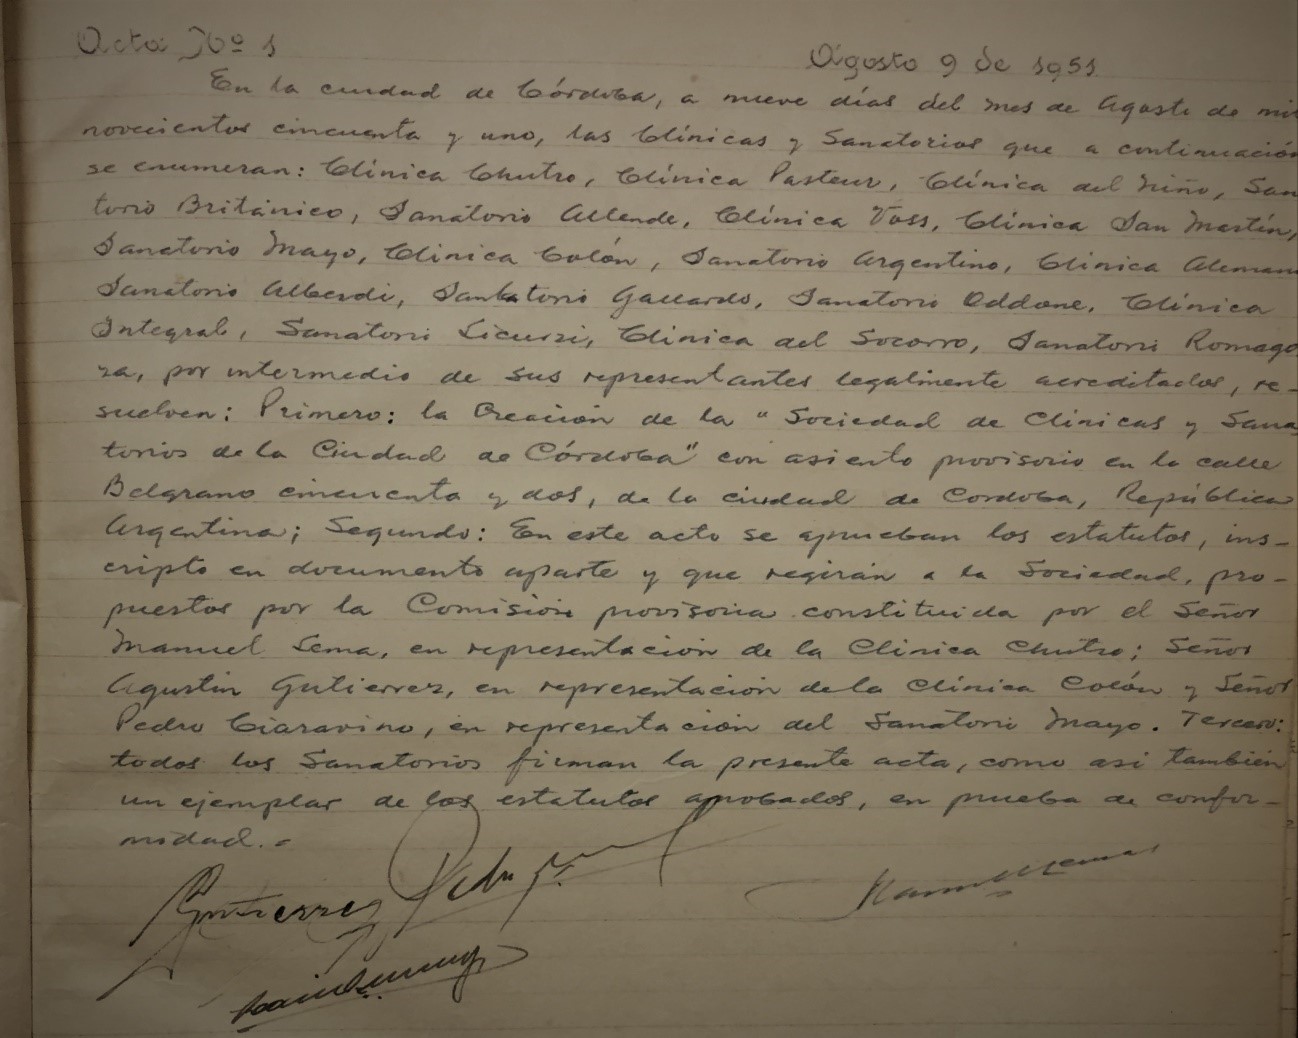 Acta Nº 1
Agosto 9 de 1951
En la ciudad de Córdoba, a nueve días del mes de Agosto de mil
novecientos cincuenta y uno, las Clínicas y Sanatorios que a continuación
se enumeran: Clínica Chutro, Clínica Pasteur, Clínica del Niño, San
torio Británico, Sanatorio Allende, Clínica Voss, Clínica San Martín,
Sanatorio Mayo, Clinica Colón, Sanatorio Argentino, Clínica Aleman
Sanatorio Alberdi, Sanatorio Gallardo, Sanatorio Oddone, Clínica
Integral, Sanatorio Licursi, Clínica del Socorro, Sanatorio Romago
za, por intermedio de sus representantes legalmente acreditados, re-
suelven: Primero: la Creación de la "Sociedad de Clínicas y Sana
torios de la Ciudad de Córdoba" con asiento provisorio en la calle
Belgrano cincuenta y dos, de la ciudad de Cordoba, República
Argentina; Segundo: En este acto se aprueban los estatutos, ins-
cripto en documento aparte y que regirán a la Sociedad, pro-
puestos por la Comisión provisoria constituida por el Señor
Manuel Sema, en representación de la Clinica Chutro; Señor
Agustin Gutierrez, en representación de la Clínica Colón y Señor
Pedro Ciaravino, en representación del Sanatorio Mayo. Tercero:
todos los Sanatorios firman la presente acta, como asi también
un ejemplar de los estatutos aprobados, en prueba de confor-
midad.-
Gutierrez